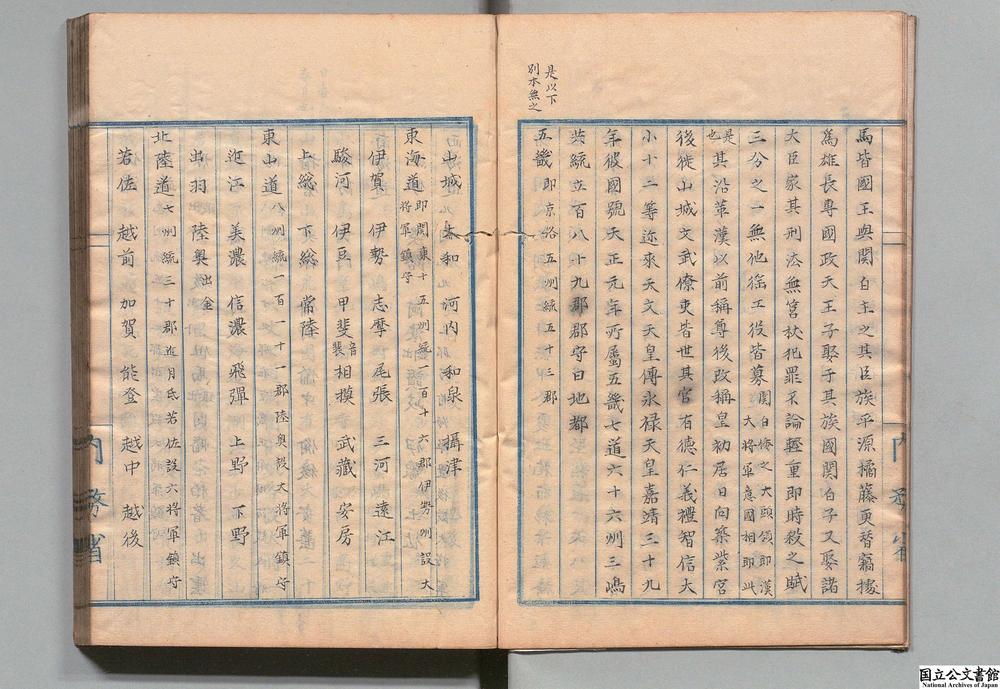 是以下
別本無之
馬皆國王與關白主之其臣族平源橘藤更替竊據
爲雄長專國政天王子娶于其族國關白子又娶諸
大臣家其刑法無笞杖犯罪不論輕重即時殺之賦
三分之一無他徭工役皆募關白倭之大頭領即漢
大將軍意國相即此
是也其沿革漢以前稱尊後改稱皇初居日向築紫宮
後徙山城文武僚吏皆世其官有德仁義禮智信大
小十二等迩來天文天皇傳永禄天皇嘉靖三十九
年彼國號天正元年所屬五畿七道六十六州三嶋
共統立百八十九郡郡守曰地都
五畿即京畧五州統五十三郡
山城 大和 河内 和泉 攝津
東海道即關東十五州統一百十六郡伊勢州設大
將軍鎮守
伊賀 伊勢 志摩 尾張 三河 遠江
駿河 伊豆 甲斐音裴 相摸 武藏 安房
上総 下総 常陸
東山道八州統一百一十一郡陸奥設大將軍鎮守
近江 美濃 信濃 飛彈 上野 下野
出羽 陸奥出金
北陸道七州統三十郡近月氐若佐設六將軍鎮守
若佐 越前 加賀 能登 越中 越後
内務省
内務省
国立公文書館
National Archives of Japan